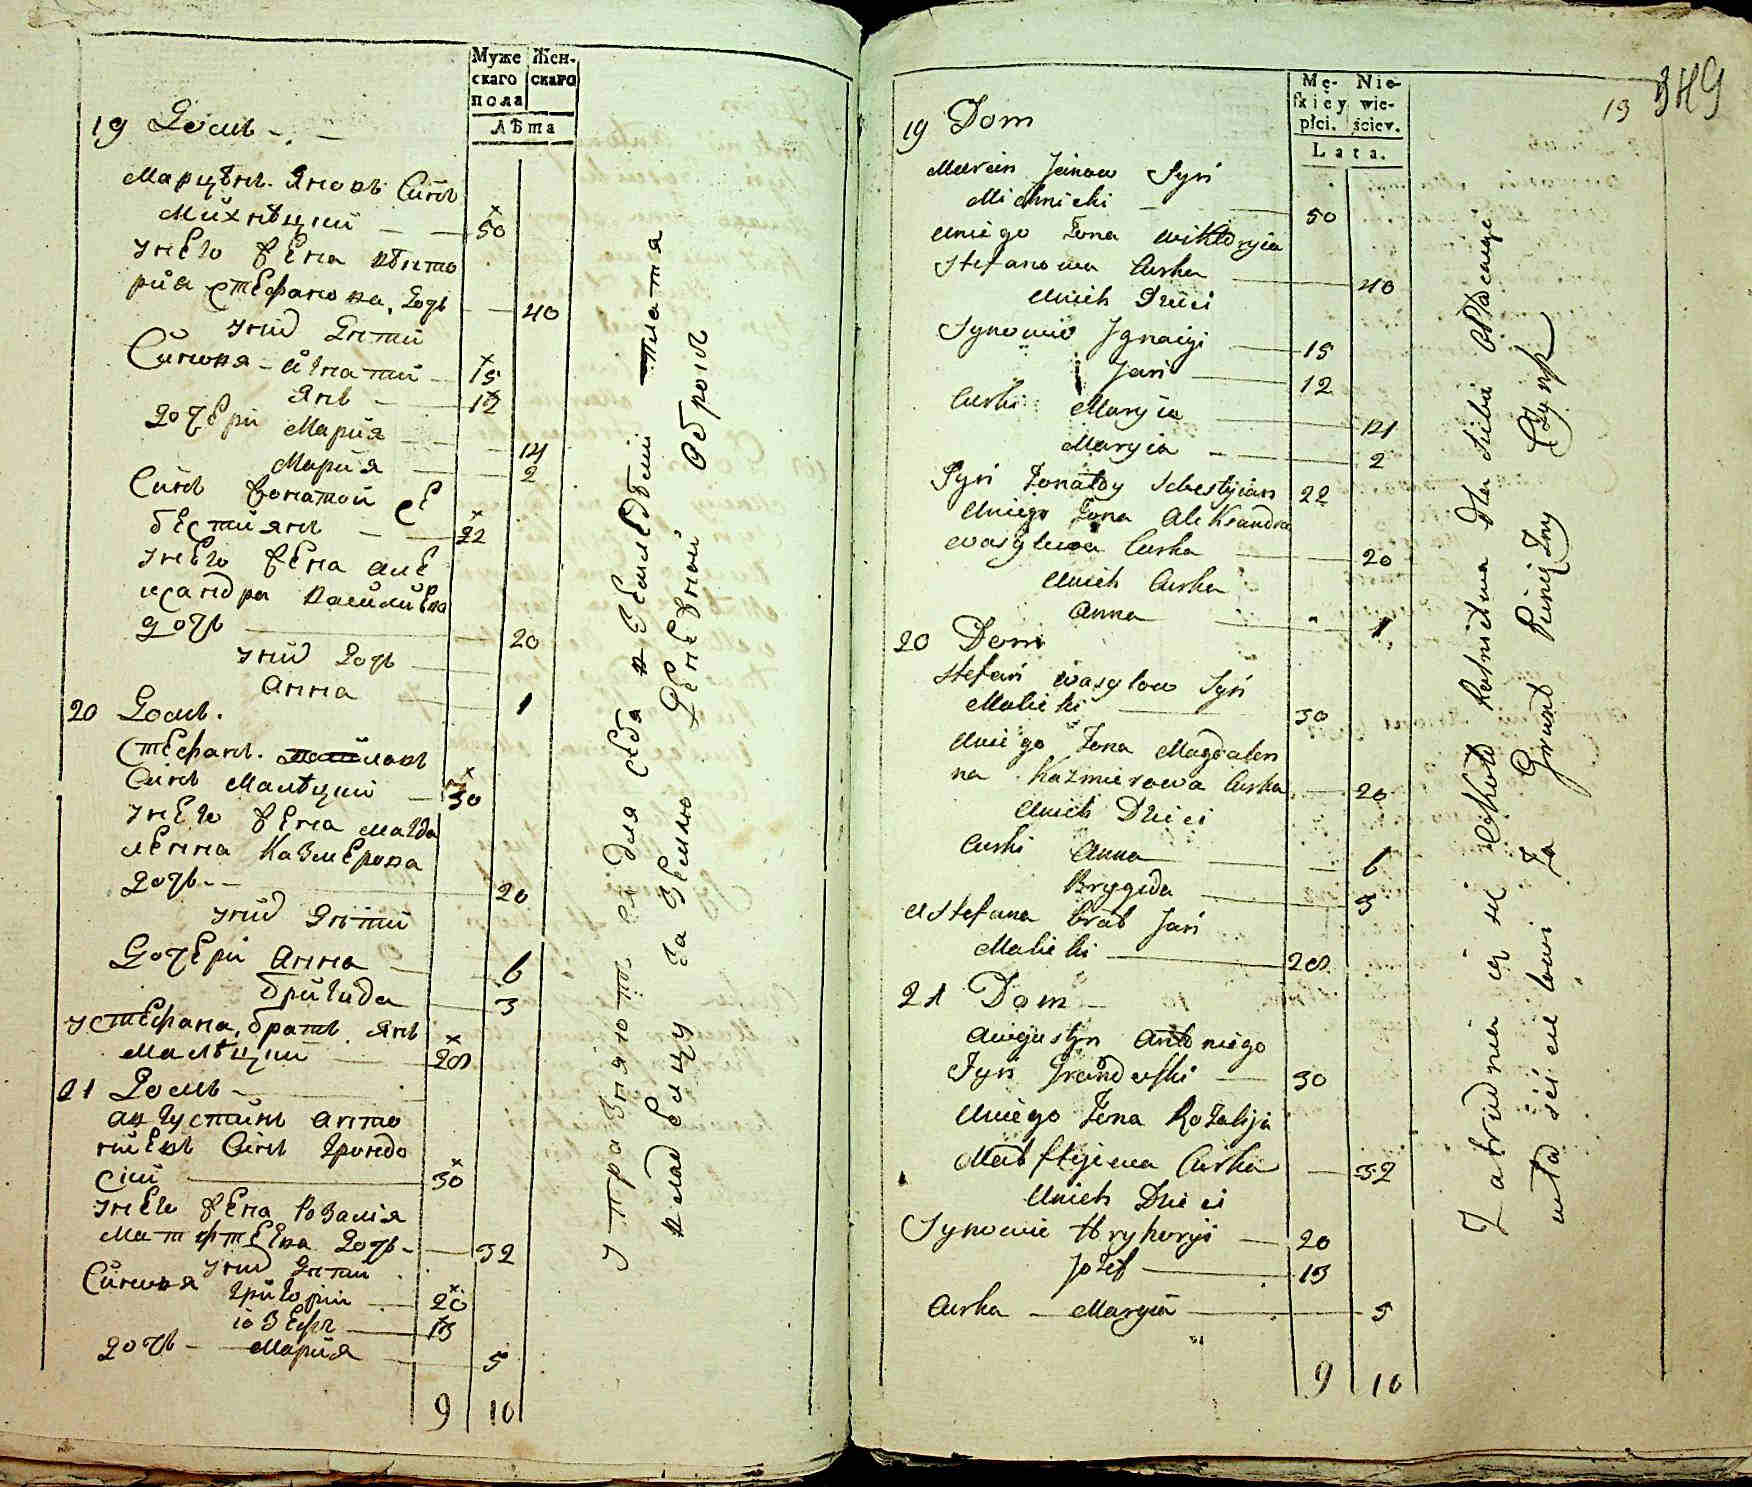 Муже Жен-
скаго скаго
пола
Лѣта
19 Домъ
Марцѣнъ Яновъ Синъ
Михнѣцкий 50
Унего жена Викто
рия Стефанова Дочь 40
Уних Дѣти
Синовя Игнатий 15
Янъ 12
Дочери Мария 14
Мария 2
Синъ жонатой Се
бестиянъ 22
Унего жена Але
ксандра Василиева
дочь 20
Уних Дочь
Анна 1
20 Домъ.
Стефанъ Василовъ
Синъ Малѣцкий 30
Унего жена Магда
ленна Казмерова
Дочь 20
Уних Дѣти
Дочери Анна 6
Бригида 3
У Стефана братъ Янъ
Малѣцкий 28
21 Домъ
Августинъ Анто
ниевъ Синъ Грондо
ский 30
Унего жена Розалия
Матфтеева Дочь 32
Уних Дѣти
Синовя Григорий 20
Иозефъ 13
дочь Мария 5
9 10
Упразняются для себя
владелцу за землю Денежной оброкъ
19 349
Mę- Nie-
skiey wie-
płci. ściey.
Lata.
19 Dom
Marcin Janow Syn
Michnicki 50
Uniego Zona Wiktoryia
Stefanowa Curka 40
Unich Dzieci
Synowie Jgnacyi 15
Jan 12
Curki Maryia 14
Maryia 2
Syn Zonaty Sebestyian 22
Uniego Zona Alexandra
Wasylewa Curka 20
Unich Curka
Anna 1
20 Dom
Stefan Wasylow Syn
Malicki 30
Uniego Zona Magdalen
na Kazmierowa Curka 20
Unich Dzieci
Curki Anna 6
Brygida 3
U Stefana brat Jan
Malicki 28
21 Dom
Augustyn Antoniego
Syn Grondofski 30
Uniego Zona Rozalija
Matfteiewa Curka 32
Unich Dzieci
Synowie Hryhoryi 20
Jozef 13
Curka Maryia 5
9 10
Zatrudnia ią się Rolnictwa dla siebie
właścicielowi Za Grunt Pieniężny Czynsz